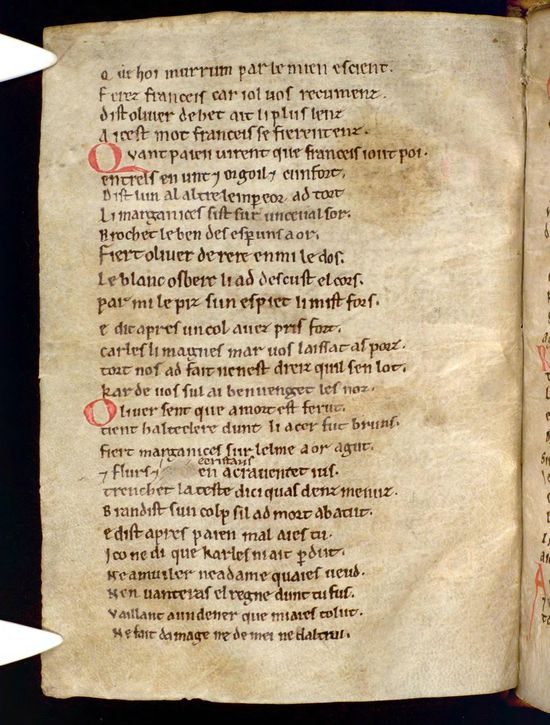 Que hoi murrum par le mien escient.
Ferez franceis car iol vos recumenz.
dist oliuer dehet ait li plus lenz
A icest mot franceis se fierent enz.
Quant paien uirent que franceis iout poi.
entrels en unt ⁊ orgoil ⁊ cunfort.
Dist lun al altre lempereor ad tort
Li marganices sist sur un ceual sor.
Brochet le ben des esperuns a or.
Fiert oliuer derere en mi le dos.
Le blanc osberc li ad descust el cors.
par mi le piz sun espiet li mist fors.
e dit apres un col auez pris fort.
carles li magnes mar uos laissat as porz.
tort nos ad fait nen est dreiz quil sen lot.
Kar de uos sul ai ben uenget les noz.
Oliuer sent que a mort est ferut.
tient halteclere dunt li acer fut bruns.
fiert marganices sur lelme a or agut.
⁊ flurs ⁊ cristaus en acrauentet ius.
trenchet la teste dici quas denz menuz.
Brandist sun colp sil ad mort abatut.
e dist apres paien mal aies tu.
Ico ne di que karles ni ait perdut.
Ne a muiler ne a dame quaies ueud.
Nen uanteras el regne dunt tu fus.
Vaillant a un dener que mi aies tolut.
Ne fait damage ne de mei ne daltrui.